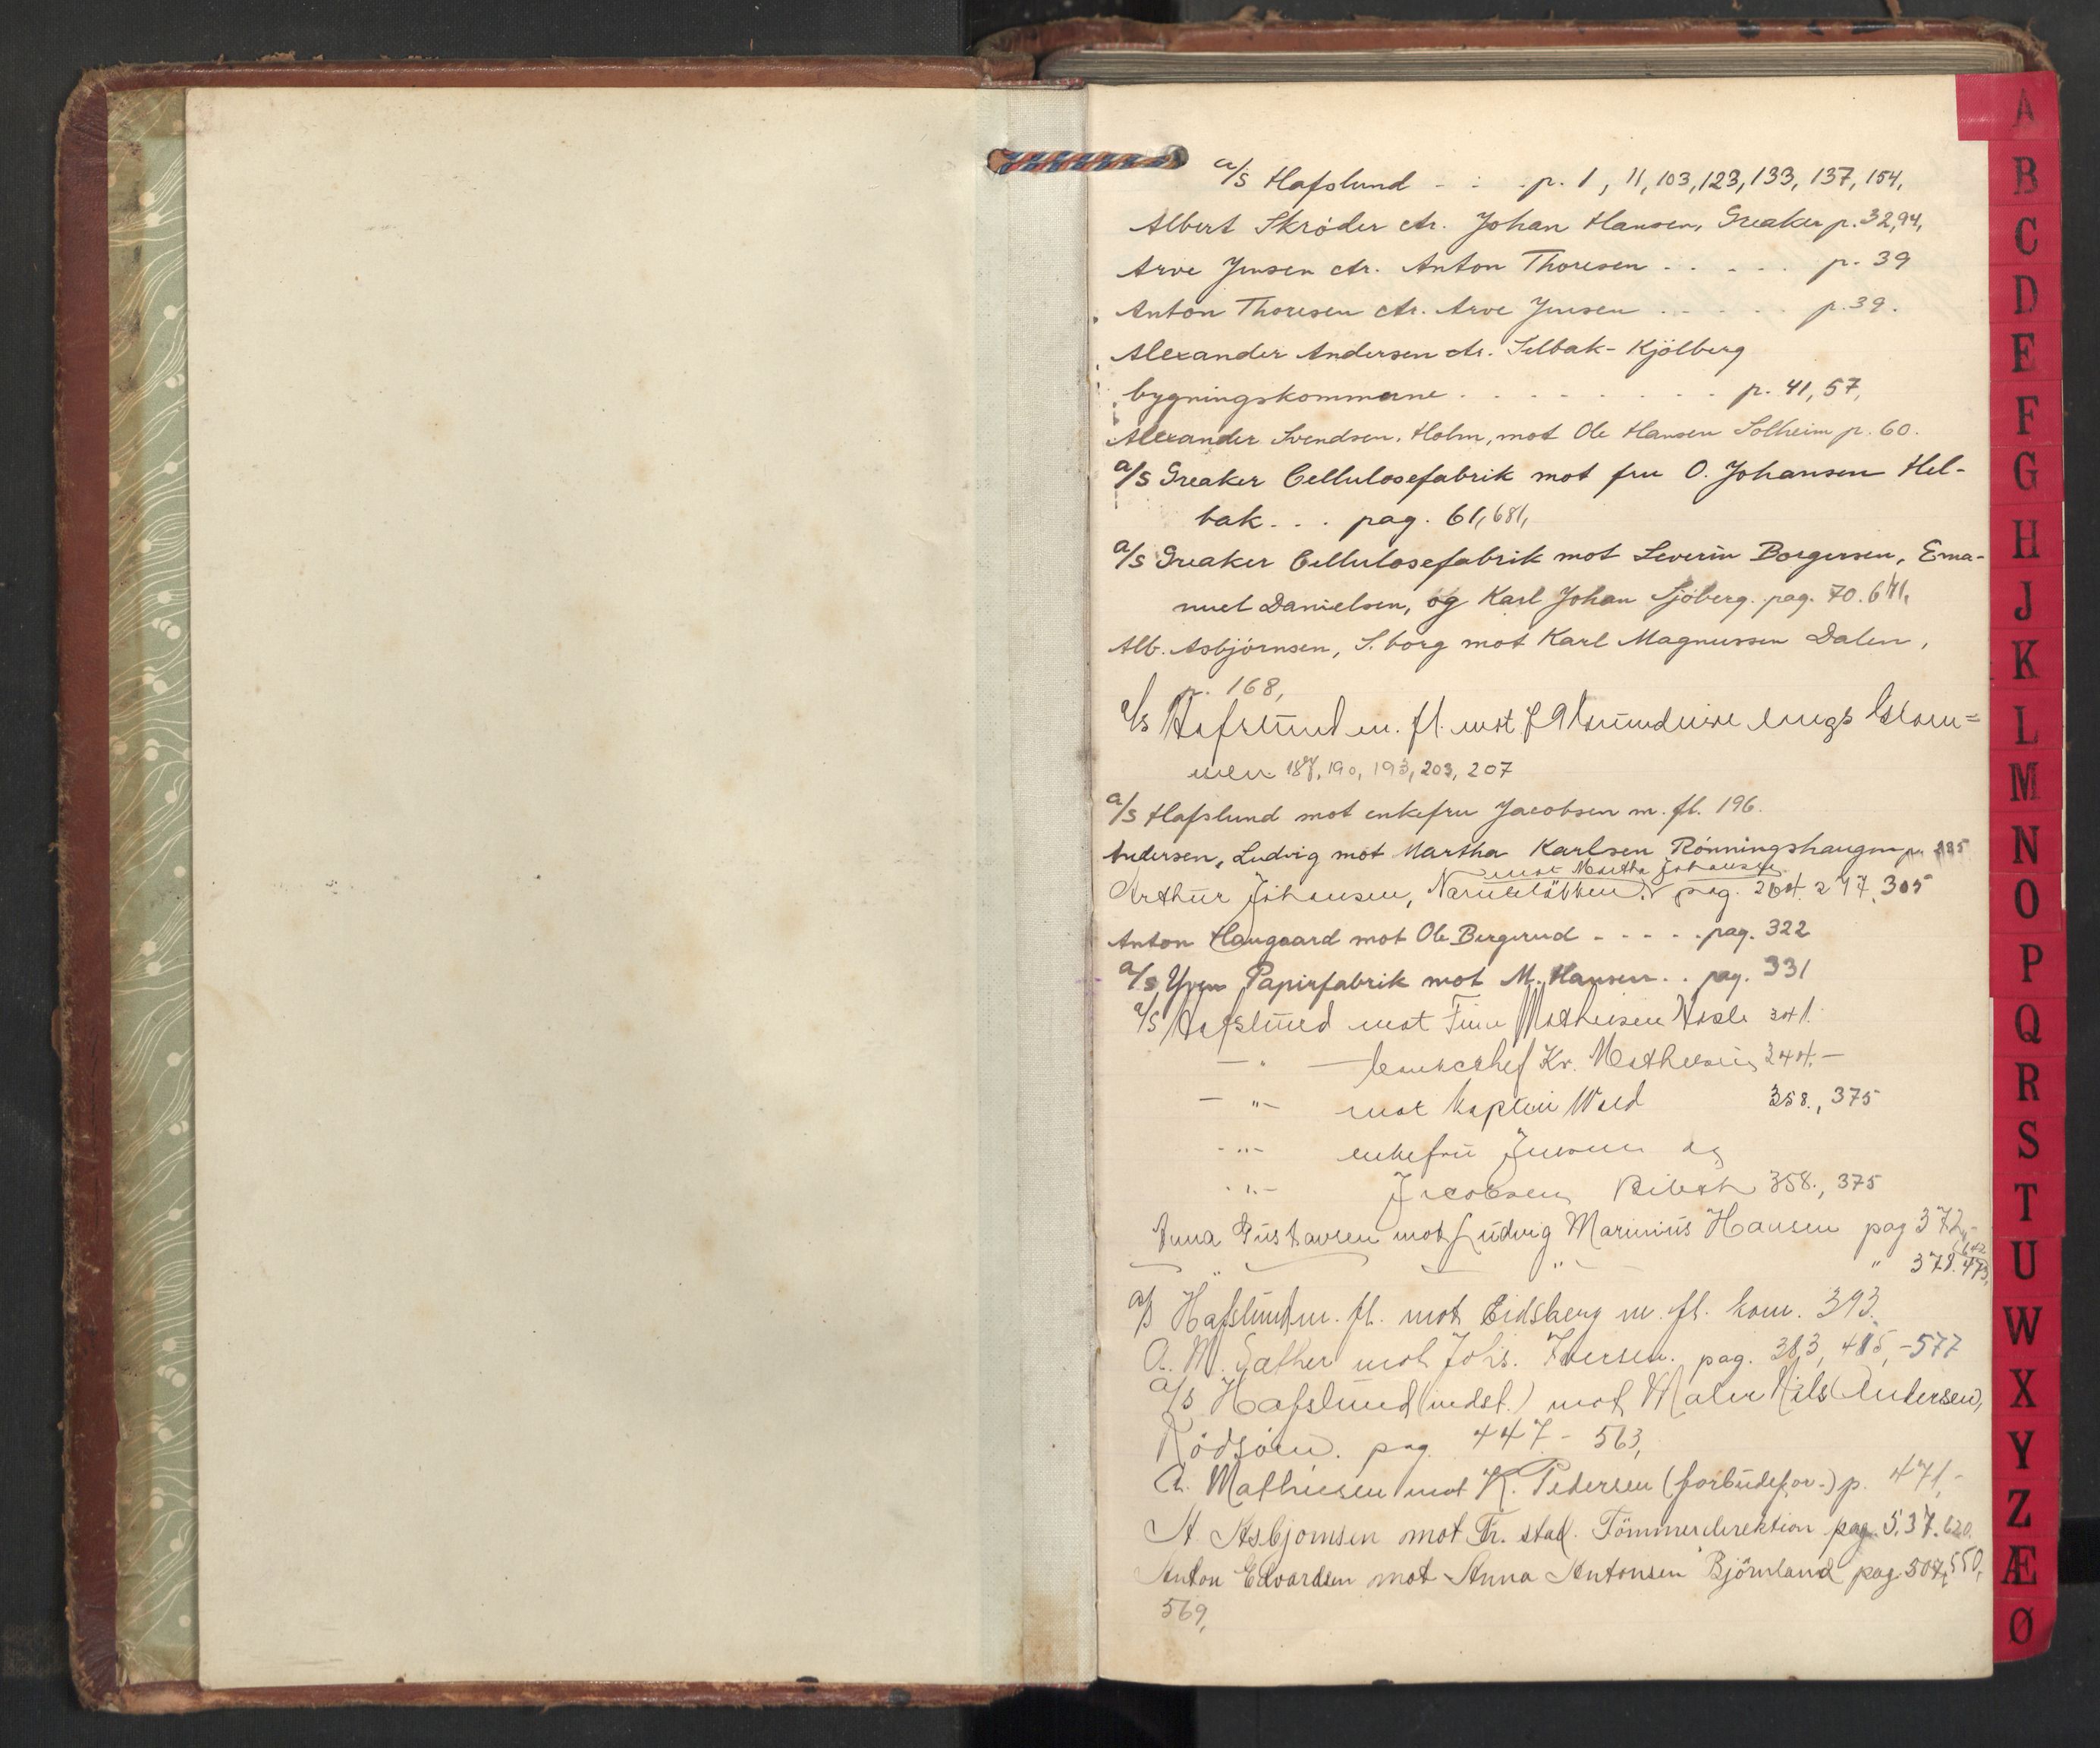 a/s Hafslund - - - p. 1, 11, 103, 123, 133, 137, 154,
Albert Skrøder ctr. Johan Hansen, Greaker p. 32, 94,
Arve Jensen ctr. Anton Thoresen . . . . . p. 39
Anton Thoresen ctr. Arve Jensen . . . . . p. 39.
Alexander Andersen ctr. Selbak-Kjölberg
bygningskommune . . . . . . . . . p. 41, 57,
Alexander Svendsen, Holm, mot Ole Hansen Solheim p. 60.
a/s Greaker Cellulosefabrik mot fru O. Johansen Hel-
bak . . . pag. 61, 681,
a/s Greaker Cellulosefabrik mot Severin Borgersen, Ema-
nuel Danielsen, og Karl Johan Sjöberg. pag. 70.
Alb. Asbjørnsen, S.borg mot Karl Magnussen Dalen,
p. 168,
a/s Hafslund m. fl. mot grundeiere langs Glom=
men 187, 190, 193, 203, 207
a/s Hafslund mot enkefru Jacobsen m. fl. 196.
Andersen, Ludvig mot Martha Karlsen Rønningshaugen p.
mot Martha Johansen
Arthur Johansen, pag. 264. 297, 305
Anton Haugaard mot Ole Bergerud - - - - - pag. 322
a/s Yven Papirfabrik mot M. Hansen . . pag. 331
a/s Hafslund mot Mathiesen 341.
— " — Kr. Mathiesen 344. —
— " — mot kaptein Wold 358., 375
- " - enkefru Jensen og
- " - Jacobsen 358., 375
Anna Gustavsen mot Ludvig Marinius Hansen pag 372,
" " " 378. 473,
a/s Hafslund m. fl. mot Eidsberg m. fl. kom. 393.
A. M. Sæther mot Johs. Iversen. pag. 383, 415, - 577
a/s Hafslund (indst.) mot Maler Nils Andersen,
Rödsöen. pag. 447 - 563,
A. Mathiesen mot K. Pedersen (forbudsfor.) p. 471, -
A. Asbjornsen mot Fr. stad. Tömmerdirektion pag. 537. 620.
Anton Edvardsen mot Anna Antonsen Björnland pag. 507, 550,
569,
A
B
C
D
E
F
G
H
J
K
L
M
N
O
P
Q
R
S
T
U
W
X
Y
Z
Æ
Ø